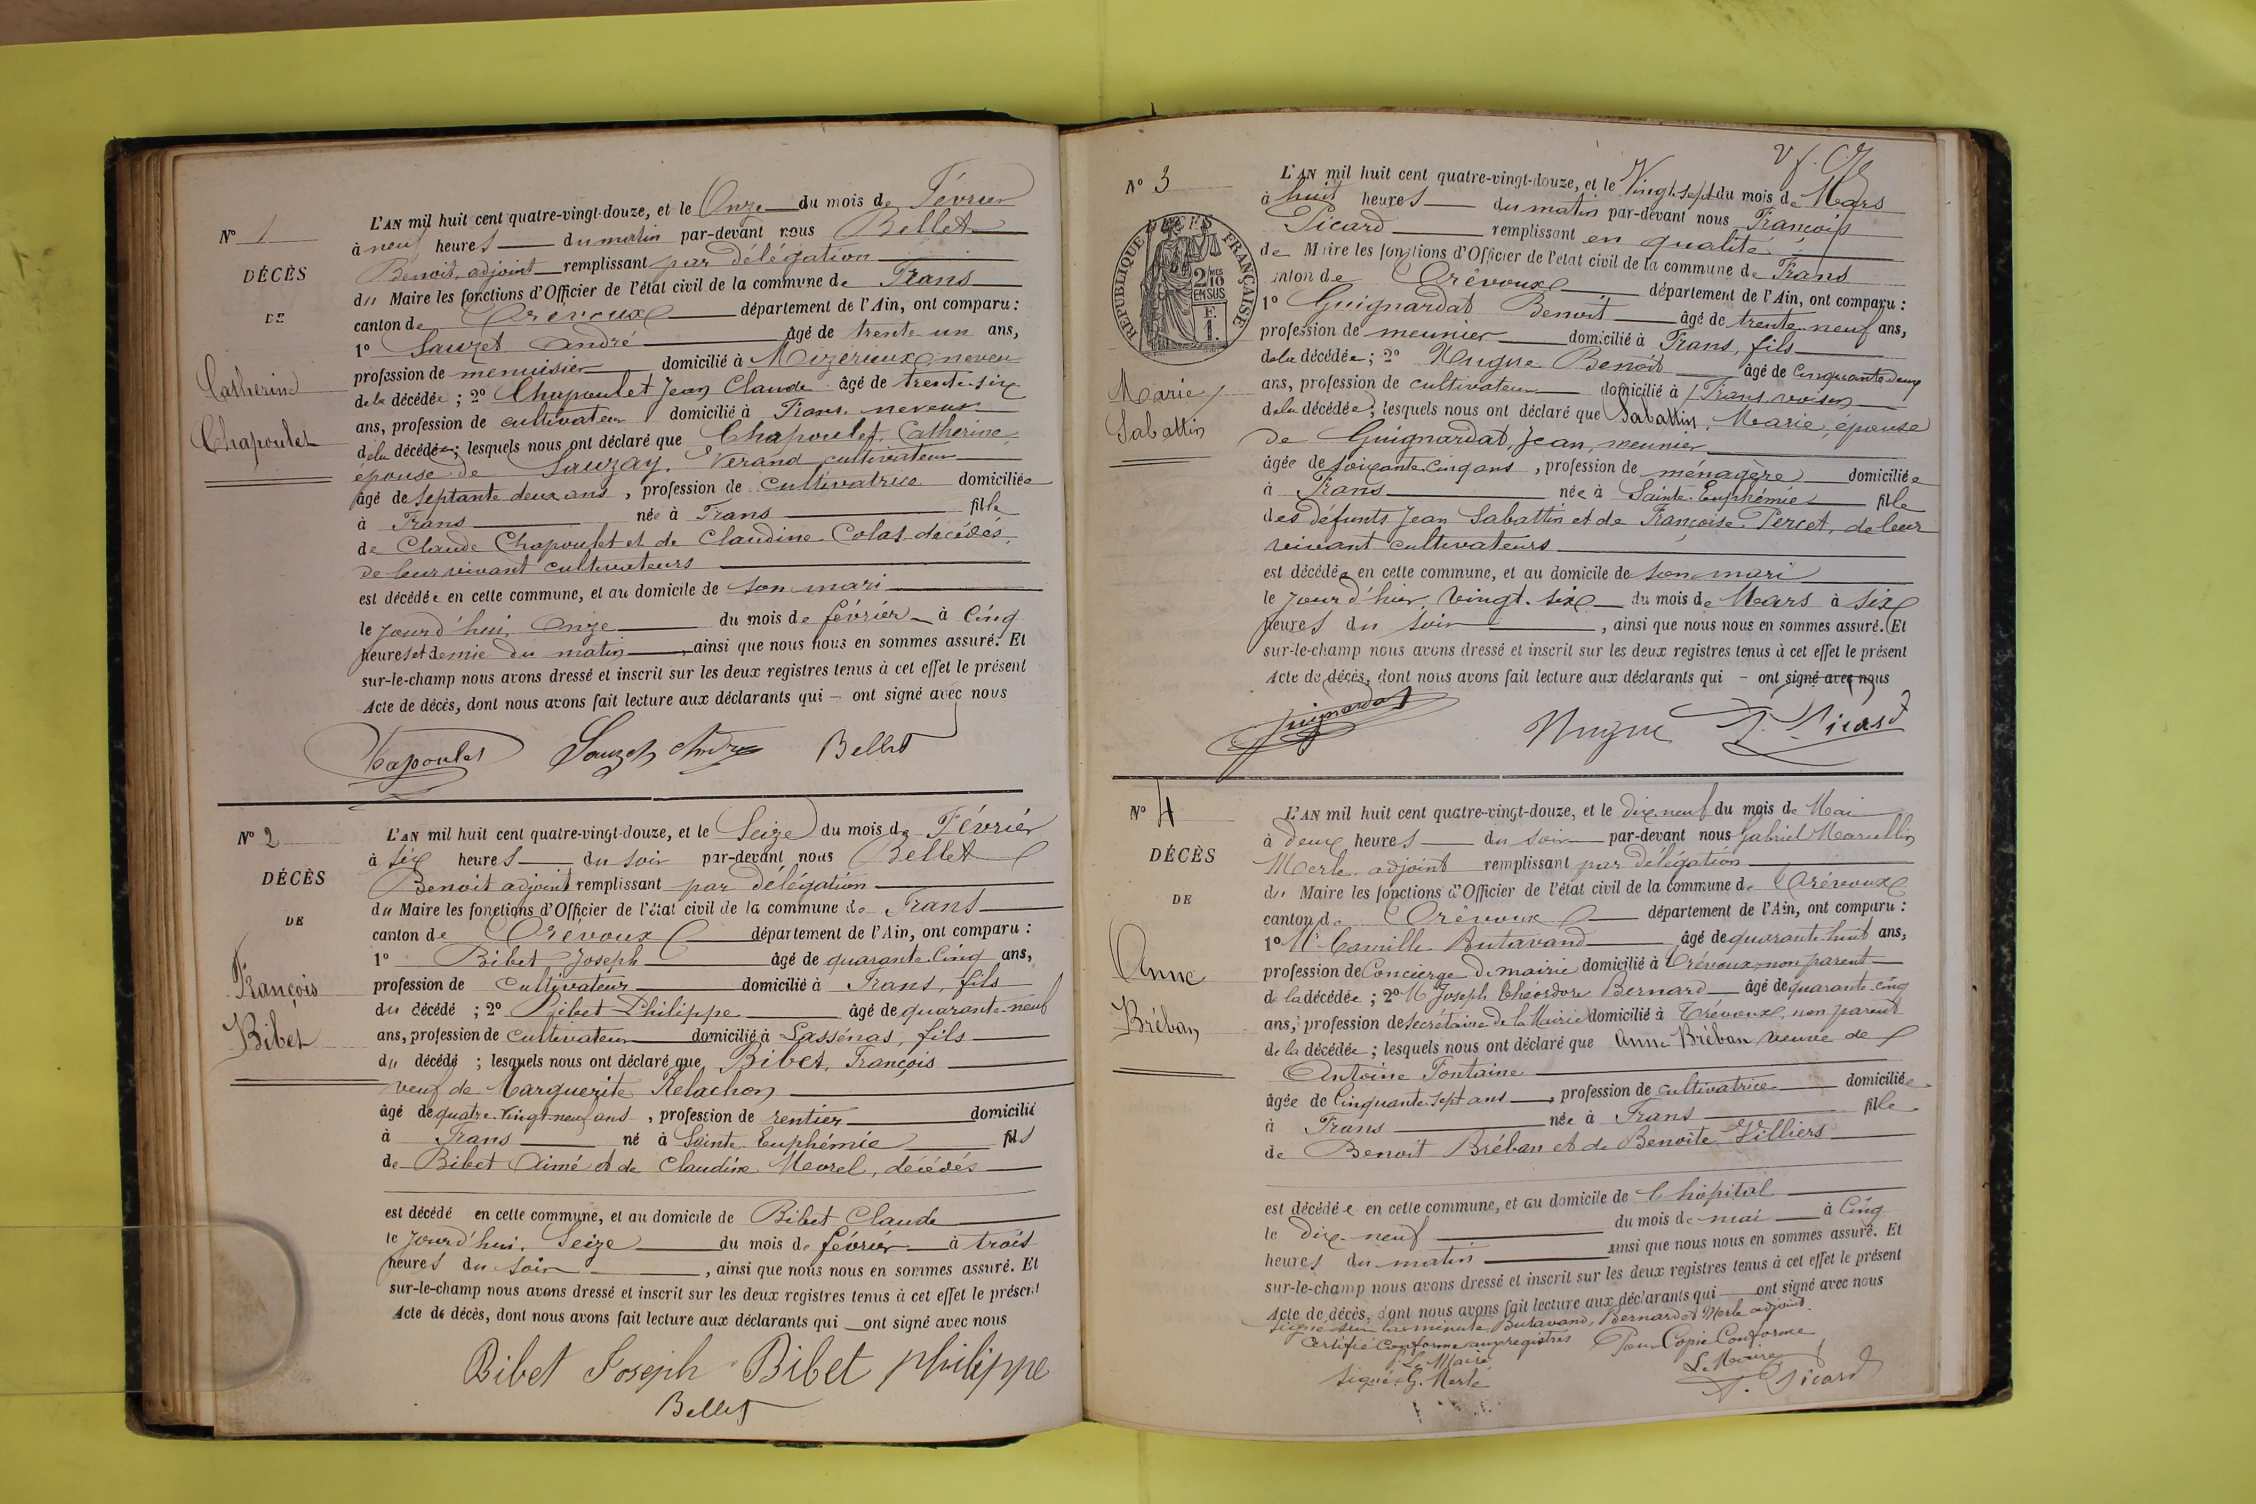 N° 1
DÉCÈS
DE
Catherine
Chapoulet
L'AN mil huit cent quatre-vingt-douze, et le Onze du mois de Février
à neuf heures du matin par-devant nous Bellet
Benoit, adjoint remplissant par délégation
du Maire les fonctions d'Officier de l'état civil de la commune de Trans
canton de Trévoux département de l'Ain, ont comparu :
1° Sauzet André âgé de trente un ans,
profession de menuisier domicilié à Mizérieux neveu
de la décédée ; 2° Chapoulet Jean Claude âgé de trente-six
ans, profession de cultivateur domicilié à Trans, neveux
de la décédée ; lesquels nous ont déclaré que Chapoulet, Catherine,
épouse de Sauzay, Vérand cultivateur
âgé de septante deux ans, profession de cultivatrice domiciliée
à Trans née à Trans fille
de Claude Chapoulet et de Claudine Colas décédés,
de leur vivant cultivateurs
est décédée en cette commune, et au domicile de son mari
le jourd'hui, onze du mois de février à cinq
heures et demie du matin, ainsi que nous nous en sommes assuré. Et
sur-le-champ nous avons dressé et inscrit sur les deux registres tenus à cet effet le présent
Acte de décès, dont nous avons fait lecture aux déclarants qui ont signé avec nous
Chapoulet Sauzet André Bellet
N° 2
DÉCÈS
DE
François
Bibet
L'AN mil huit cent quatre-vingt-douze, et le Seize du mois de Février
à six heures du soir par-devant nous Bellet
Benoit adjoint remplissant par délégation
du Maire les fonctions d'Officier de l'état civil de la commune de Trans
canton de Trévoux département de l'Ain, ont comparu :
1° Bibet Joseph âgé de quarante cinq ans,
profession de cultivateur domicilié à Trans, fils
du décédé ; 2° Bibet Philippe âgé de quarante-neuf
ans, profession de cultivateur domicilié à Sassénas, fils
du décédé ; lesquels nous ont déclaré que Bibet, François
veuf de Marguerite Relachon
âgé de quatre-vingt-neuf ans, profession de rentier domicilié
à Trans né à Sainte Euphémie fils
de Bibet Aimé et de Claudine Morel, décédés
est décédé en cette commune, et au domicile de Bibet Claude
le jourd'hui, Seize du mois de février à trois
heures du soir, ainsi que nous nous en sommes assuré. Et
sur-le-champ nous avons dressé et inscrit sur les deux registres tenus à cet effet le présent
Acte de décès, dont nous avons fait lecture aux déclarants qui ont signé avec nous
Bibet Joseph Bibet philippe
Bellet
N° 3
REPUBLIQUE FRANÇAISE
2/10 EN SUS
F.
1.
Marie
Sabattin
L'AN mil huit cent quatre-vingt-douze, et le Vingt-sept du mois de Mars
à huit heures du matin par-devant nous François
Picard remplissant en qualité
de Maire les fonctions d'Officier de l'état civil de la commune de Trans
canton de Trévoux département de l'Ain, ont comparu :
1° Guignardat Benoit âgé de trente-neuf ans,
profession de meunier domicilié à Trans, fils
de la décédée ; 2° Nugue Benoît âgé de cinquante deux
ans, profession de cultivateur domicilié à Trans voisin
de la décédée ; lesquels nous ont déclaré que Sabattin, Marie, épouse
de Guignardat, Jean, meunier
âgée de soixante-cinq ans, profession de ménagère domiciliée
à Trans née à Sainte-Euphémie fille
des défunts Jean Sabattin et de Françoise Percet, de leur
vivant cultivateurs
est décédée en cette commune, et au domicile de son mari
le jour d'hier, vingt-six du mois de Mars à six
heures du soir, ainsi que nous nous en sommes assuré. Et
sur-le-champ nous avons dressé et inscrit sur les deux registres tenus à cet effet le présent
Acte de décès, dont nous avons fait lecture aux déclarants qui ont signé avec nous
Guignardat Nugue F. Picard
N° 4
DÉCÈS
DE
Anne
Bréban
L'AN mil huit cent quatre-vingt-douze, et le dix-neuf du mois de Mai
à deux heures du soir par-devant nous Gabriel Marcellin
Merle adjoint remplissant par délégation
du Maire les fonctions d'Officier de l'état civil de la commune de Trévoux
canton de Trévoux département de l'Ain, ont comparu :
1° Mr Camille Butavand âgé de quarante-huit ans,
profession de Concierge de mairie domicilié à Trévoux, non parent
de la décédée ; 2° M Joseph Théordore Bernard âgé de quarante-cinq
ans, profession de secrétaire de la Mairie domicilié à Trévoux, non parent
de la décédée ; lesquels nous ont déclaré que Anne Bréban veuve de
Antoine Fontaine
âgée de Cinquante-sept ans, profession de cultivatrice domiciliée
à Trans née à Trans fille
de Benoit Bréban et de Benoite Villiers
est décédée en cette commune, et au domicile de l'hôpital
le dix-neuf du mois de mai à cinq
heures du matin ainsi que nous nous en sommes assuré. Et
sur-le-champ nous avons dressé et inscrit sur les deux registres tenus à cet effet le présent
Acte de décès, dont nous avons fait lecture aux déclarants qui ont signé avec nous
Signé sur la minute, Butavand, Bernard et Merle adjoint.
Certifié conforme aux registres Pour Copie Conforme
Le Maire Le Maire
Signé G. Merle F. Picard